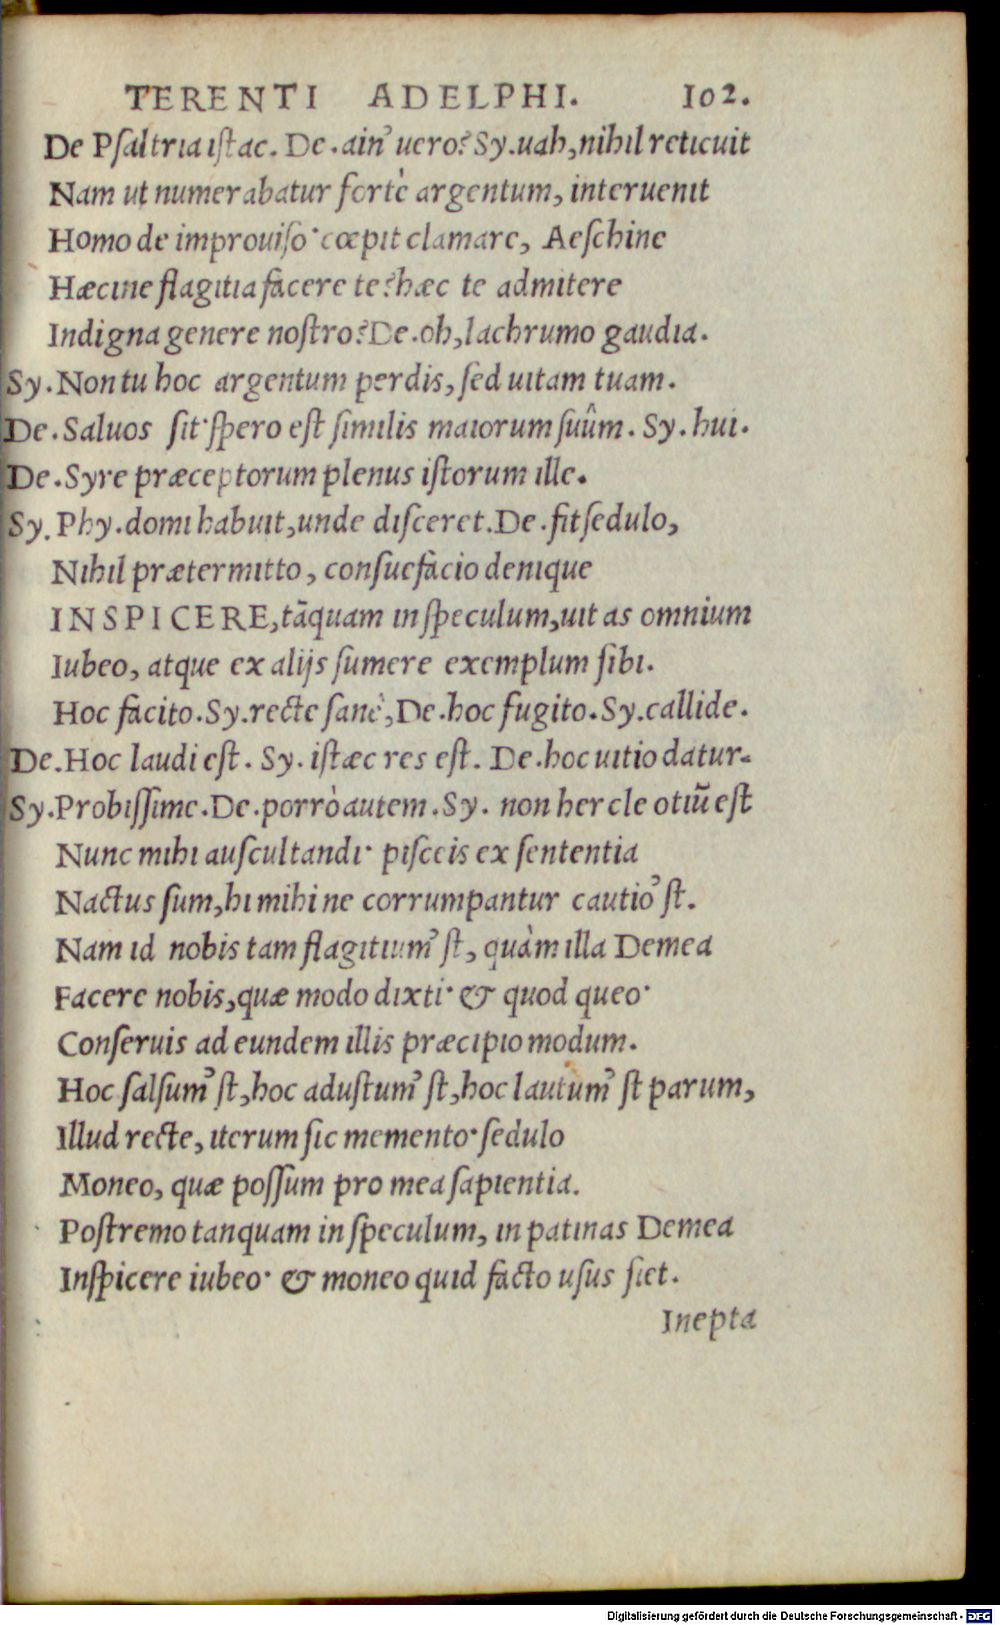 TERENTI ADELPHI. 102.
De Psaltria istac. De. ain' uero? Sy. uah, nihil reticuit
Nam ut numerabatur fortè argentum, interuenit
Homo de improuiso· cœpit clamare, Aeschine
Hæcine flagitia facere te? hæc te admitere
Indigna genere nostro? De. oh, lachrumo gaudia.
Sy. Non tu hoc argentum perdis, sed uitam tuam.
De. Saluos sit· spero est similis maiorum suûm. Sy. hui.
De. Syre præceptorum plenus istorum ille.
Sy. Phy. domi habuit, unde disceret. De. fit sedulo,
Nihil prætermitto, consuefacio denique
INSPICERE, tāquam in speculum, uitas omnium
Iubeo, atque ex alijs sumere exemplum sibi.
Hoc facito. Sy. recte sanè, De. hoc fugito. Sy. callide.
De. Hoc laudi est. Sy. istæc res est. De. hoc uitio datur.
Sy. Probissime. De. porrò autem. Sy. non hercle otiū est
Nunc mihi auscultandi· pisceis ex sententia
Nactus sum, hi mihi ne corrumpantur cautio' st.
Nam id nobis tam flagitium' st, quàm illa Demea
Facere nobis, quæ modo dixti· & quod queo·
Conseruis ad eundem illis præcipio modum.
Hoc salsum' st, hoc adustum' st, hoc lautum' st parum,
Illud recte, iterum sic memento· sedulo
Moneo, quæ possum pro mea sapientia.
Postremo tanquam in speculum, in patinas Demea
Inspicere iubeo· & moneo quid facto usus siet.
Inepta
Digitalisierung gefördert durch die Deutsche Forschungsgemeinschaft - DFG